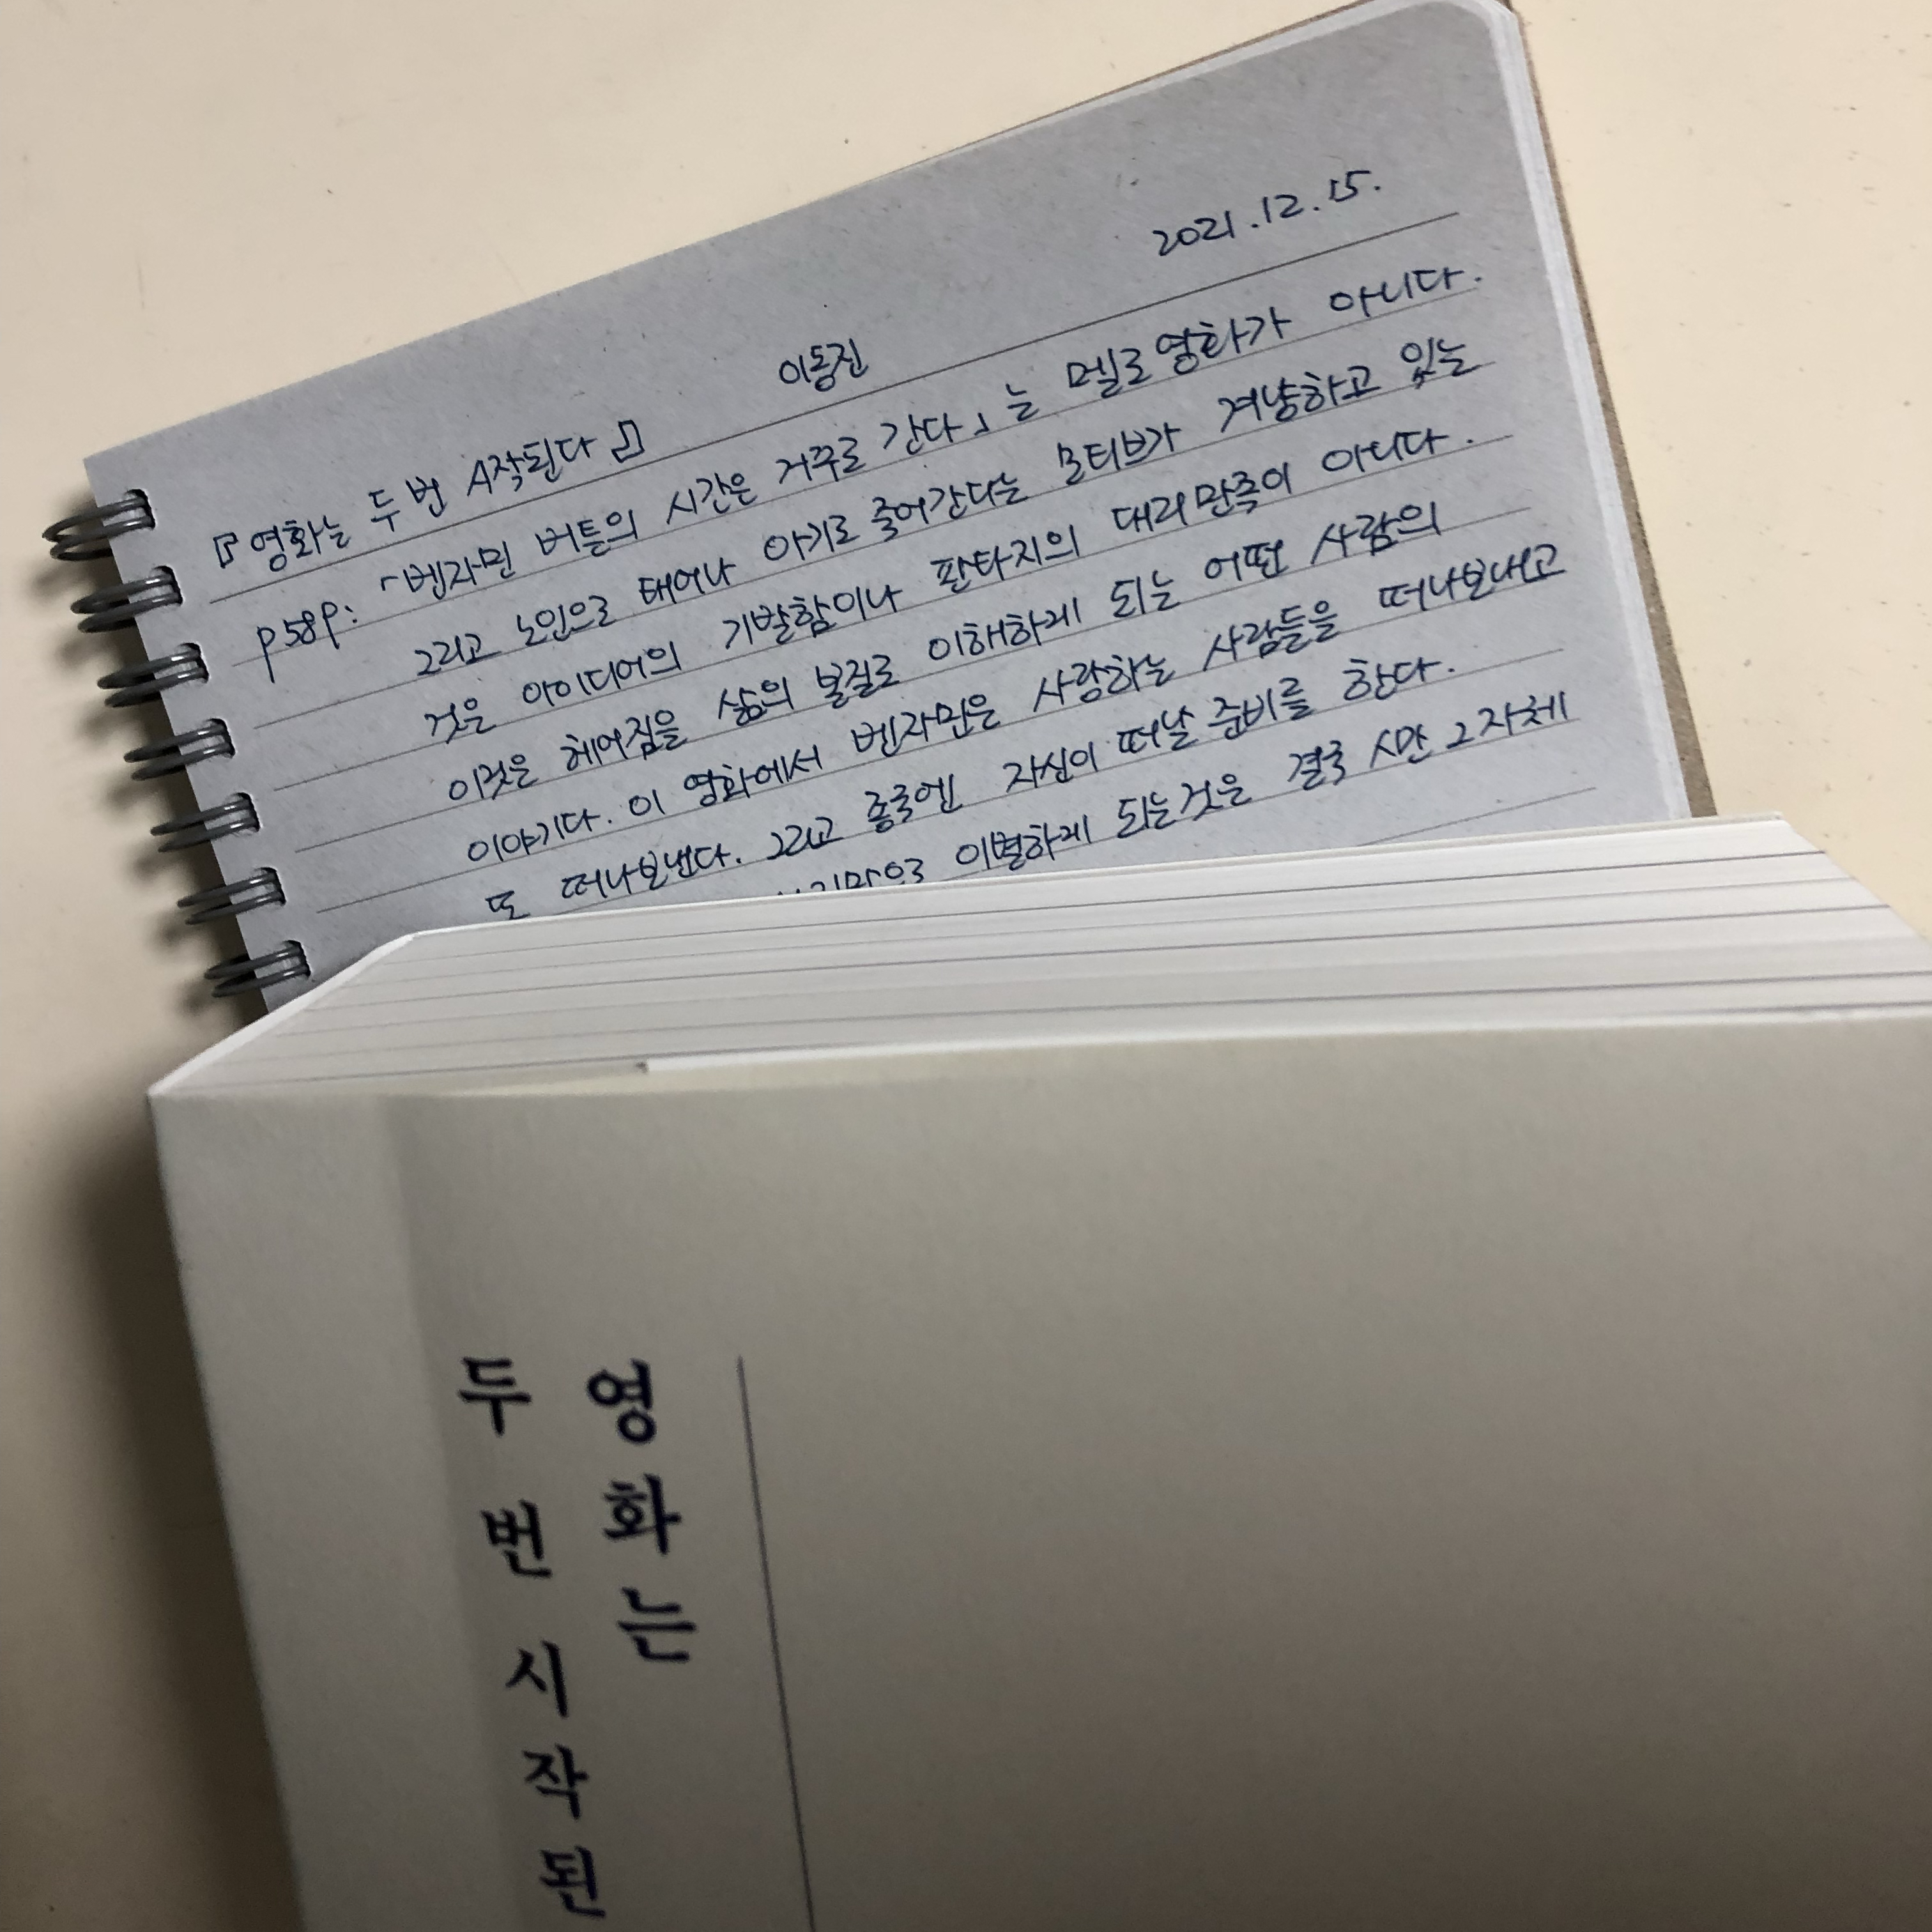 2021.12.15.
『영화는 두 번 시작된다』 이동진
p589: 「벤자민 버튼의 시간은 거꾸로 간다」는 멜로영화가 아니다.
그리고 노인으로 태어나 아기로 죽어간다는 모티브가 겨냥하고 있는
것은 아이디어의 기발함이나 판타지의 대리만족이 아니다.
이것은 헤어짐을 삶의 본질로 이해하게 되는 어떤 사람의
이야기다. 이 영화에서 벤자민은 사랑하는 사람들을 떠나보내고
또 떠나보낸다. 그리고 종국엔 자신이 떠날 준비를 한다.
이별하게 되는것은 결국 시간 그 자체
영화는
두 번 시작된